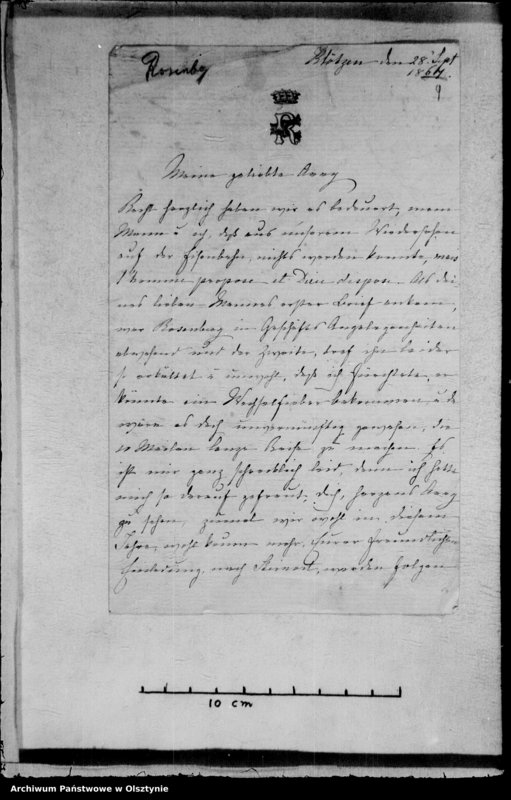 Rosenbg
Klötzen den 28t Sept
1864.
9
R
Meine geliebte Anny
Recht herzlich haben wir es bedauert, mein
Mann u ich, daß aus unserem Wiedersehen
auf der Eisenbahn, nichts werden konnte, mais
l'homme propose et Dieu dispose. Als dei-
nes lieben Mannes erster Brief ankam,
war Rosenberg in Geschäfts Angelegenheiten
abwesend und der Zweite, traf ihn leider
so erkältet u unwohl, daß ich fürchtete, er
könnte ein Wechselfieber bekommen, u da
wäre es doch unvernünftig gewesen, die
10 Meilen lange Reise zu machen. Es
ist mir ganz schrecklich leid, denn ich hatte
mich so darauf gefreut, dich, herzens Anny
zu sehen, zumal wir wohl in diesem
Jahre, wohl kaum mehr Eurer freundlichen
Einladung, nach werden folgen
10 cm
Archiwum Państwowe w Olsztynie